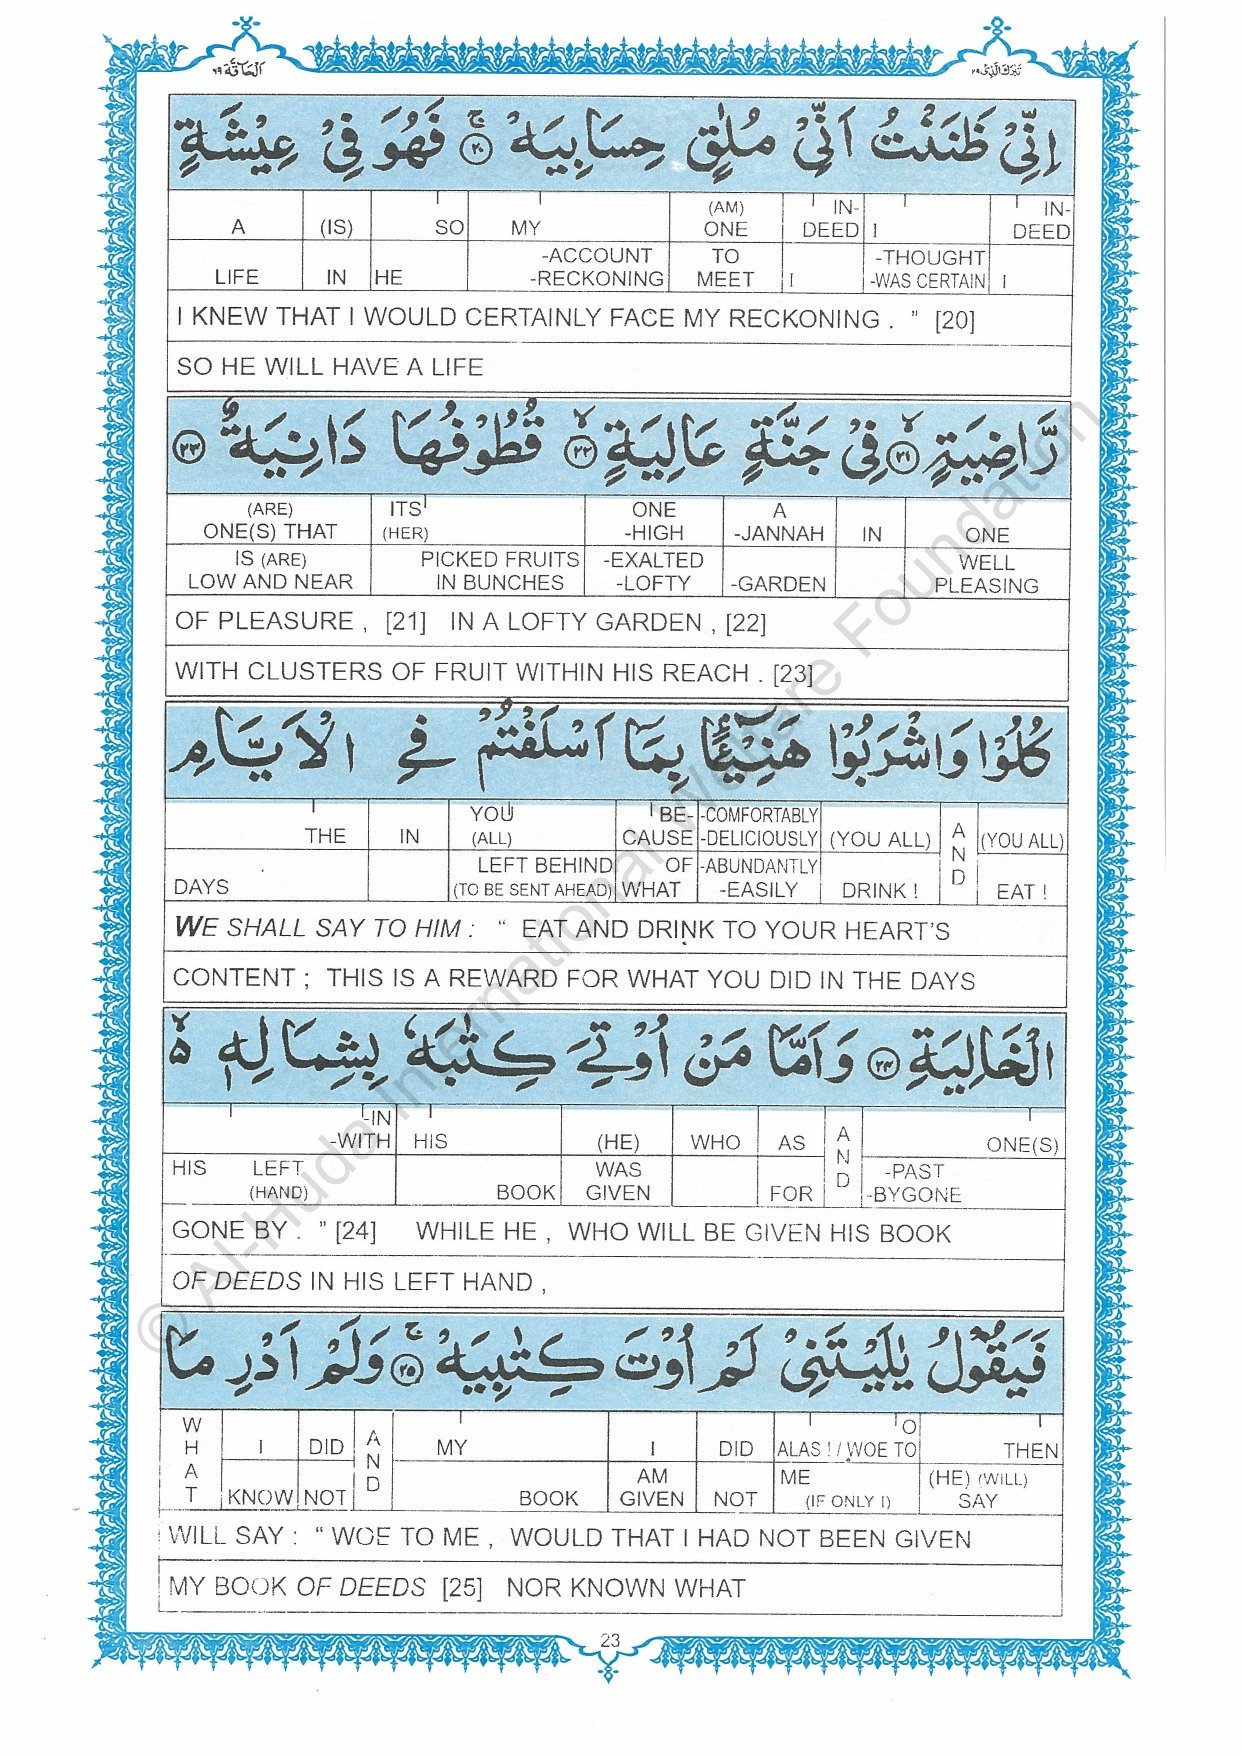 اَلْحَآقَّة ٦٩
تَبٰرَكَ الَّذِیْ ٢٩
اِنِّیْ ظَنَنْتُ اَنِّیْ مُلٰقٍ حِسَابِیَهْ ۚ ﴿٢٠﴾ فَهُوَ فِیْ عِیْشَةٍ
A (IS) SO MY (AM) ONE IN- DEED I IN- DEED
LIFE IN HE -ACCOUNT -RECKONING TO MEET I -THOUGHT -WAS CERTAIN I
I KNEW THAT I WOULD CERTAINLY FACE MY RECKONING . ” [20]
SO HE WILL HAVE A LIFE
رَّاضِیَةٍ ﴿٢١﴾ ۙ فِیْ جَنَّةٍ عَالِیَةٍ ﴿٢٢﴾ ۙ قُطُوْفُهَا دَانِیَةٌ ﴿٢٣﴾
(ARE) ONE(S) THAT ITS (HER) ONE -HIGH A -JANNAH IN ONE
IS (ARE) LOW AND NEAR PICKED FRUITS IN BUNCHES -EXALTED -LOFTY -GARDEN WELL PLEASING
OF PLEASURE , [21] IN A LOFTY GARDEN , [22]
WITH CLUSTERS OF FRUIT WITHIN HIS REACH . [23]
كُلُوْا وَاشْرَبُوْا هَنِیْٓـًٔۢا بِمَآ اَسْلَفْتُمْ فِی الْاَیَّامِ
THE IN YOU (ALL) BE- CAUSE -COMFORTABLY -DELICIOUSLY (YOU ALL) AND (YOU ALL)
DAYS LEFT BEHIND (TO BE SENT AHEAD) OF WHAT -ABUNDANTLY -EASILY DRINK ! EAT !
WE SHALL SAY TO HIM : “ EAT AND DRINK TO YOUR HEART’S
CONTENT ; THIS IS A REWARD FOR WHAT YOU DID IN THE DAYS
الْخَالِیَةِ ﴿٢٣﴾ وَاَمَّا مَنْ اُوْتِیَ كِتٰبَهٗ بِشِمَالِهٖ ۙ ۵
-IN -WITH HIS (HE) WHO AS AND ONE(S)
HIS LEFT (HAND) BOOK WAS GIVEN FOR -PAST -BYGONE
GONE BY . ” [24] WHILE HE , WHO WILL BE GIVEN HIS BOOK
OF DEEDS IN HIS LEFT HAND ,
فَیَقُوْلُ یٰلَیْتَنِیْ لَمْ اُوْتَ كِتٰبِیَهْ ۚ ﴿٢٥﴾ وَلَمْ اَدْرِ مَا
WHAT I DID AND MY I DID O ALAS ! / WOE TO THEN
KNOW NOT BOOK AM GIVEN NOT ME (IF ONLY I) (HE) (WILL) SAY
WILL SAY : “ WOE TO ME , WOULD THAT I HAD NOT BEEN GIVEN
MY BOOK OF DEEDS [25] NOR KNOWN WHAT
23
© Al-Huda International Welfare Foundation